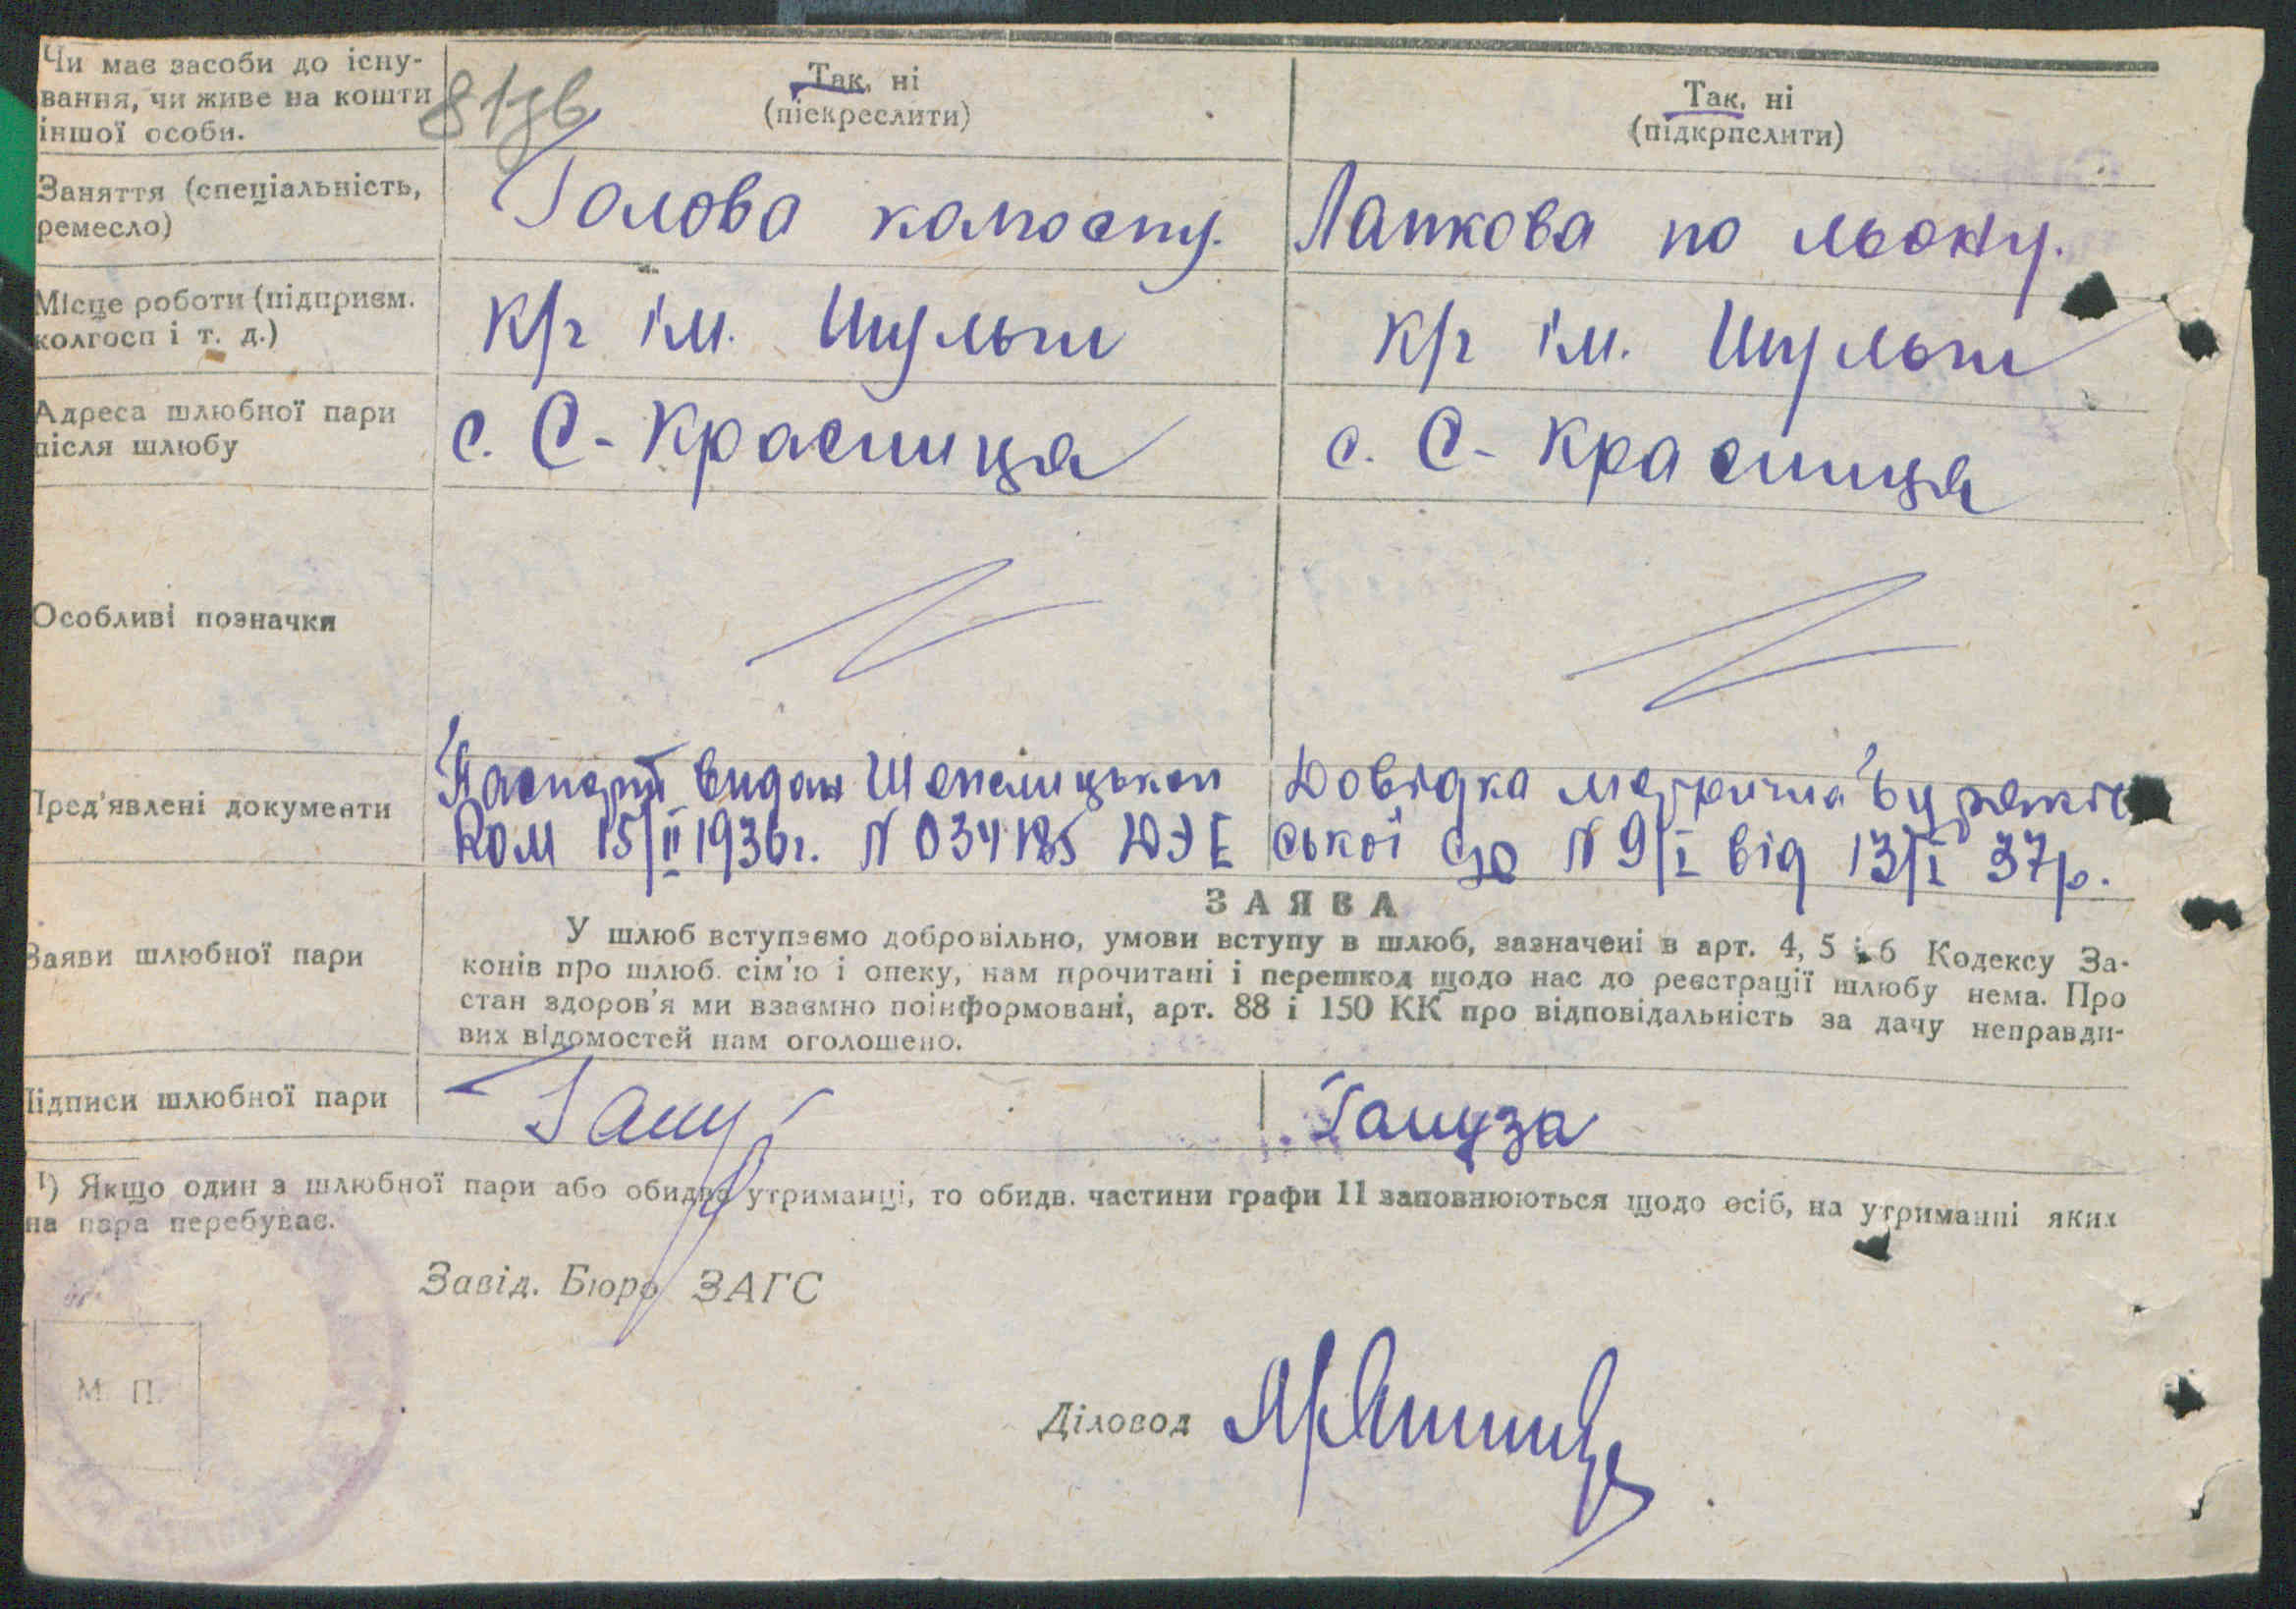 Чи має засоби до існу-
вання, чи живе на кошти
іншої особи.
81зв
Так, ні
(піскреслити)
Так, ні
(підкрпслити)
Заняття (спеціальність,
ремесло)
Голова колгоспу.
Ланкова по льону.
Місце роботи (підприєм.
колгосп і т. д.)
К/г ім. Шульги
К/г ім. Шульги
Адреса шлюбної пари
після шлюбу
с. С-Красниця
с. С-Красниця
Особливі позначки
Пред'явлені документи
Паспорт видан Шепелицьким
Ком 15/II 1936г. N 034185
Довідка метрична
ської с/р N 9/I від 13/I 37р.
ЗАЯВА
Заяви шлюбної пари
У шлюб вступаємо добровільно, умови вступу в шлюб, зазначені в арт. 4, 5 і 6 Кодексу За-
конів про шлюб. сім'ю і опеку, нам прочитані і перешкод щодо нас до реєстрації шлюбу нема. Про
стан здоров'я ми взаємно поінформовані, арт. 88 і 150 КК про відповідальність за дачу неправди-
вих відомостей нам оголошено.
Підписи шлюбної пари
Гануза
¹) Якщо один з шлюбної пари або обидва утриманці, то обидв. частини графи 11 заповнюються щодо осіб, на утриманні яких
на пара перебуває.
Завід. Бюро ЗАГС
М. П.
Діловод